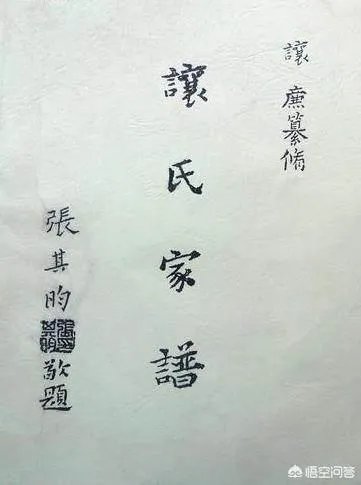 讓 廉纂脩
讓氏家譜
張其昀敬題
悟空问答